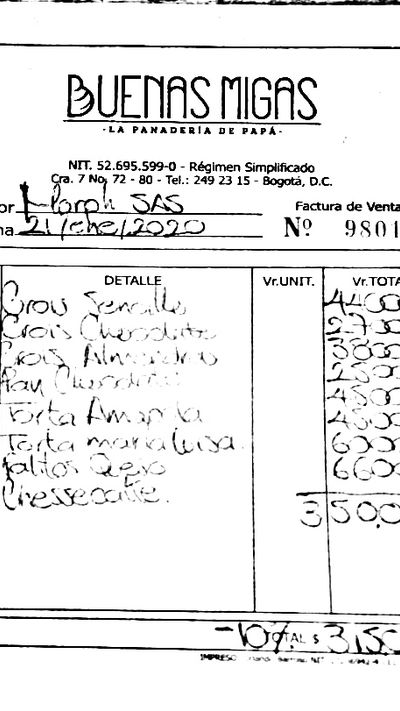 BUENAS MIGAS
·LA PANADERÍA DE PAPÁ·
NIT. 52.695.599-0 - Régimen Simplificado
Cra. 7 No. 72 - 80 - Tel.: 249 23 15 - Bogotá, D.C.
or SAS Factura de Venta
ha 21/ene/2020 Nº 9801
DETALLE Vr.UNIT. Vr.TOTA
Crois Sencillo 4400
Crois Chocolate 2700
Crois Almendras 3800
Pan 2500
Torta Amapola 4500
Torta maria luisa. 4500
Palitos Queso 6000
Chessecake. 6600
350,0
-10% OTAL $ 3150
IMPRESO